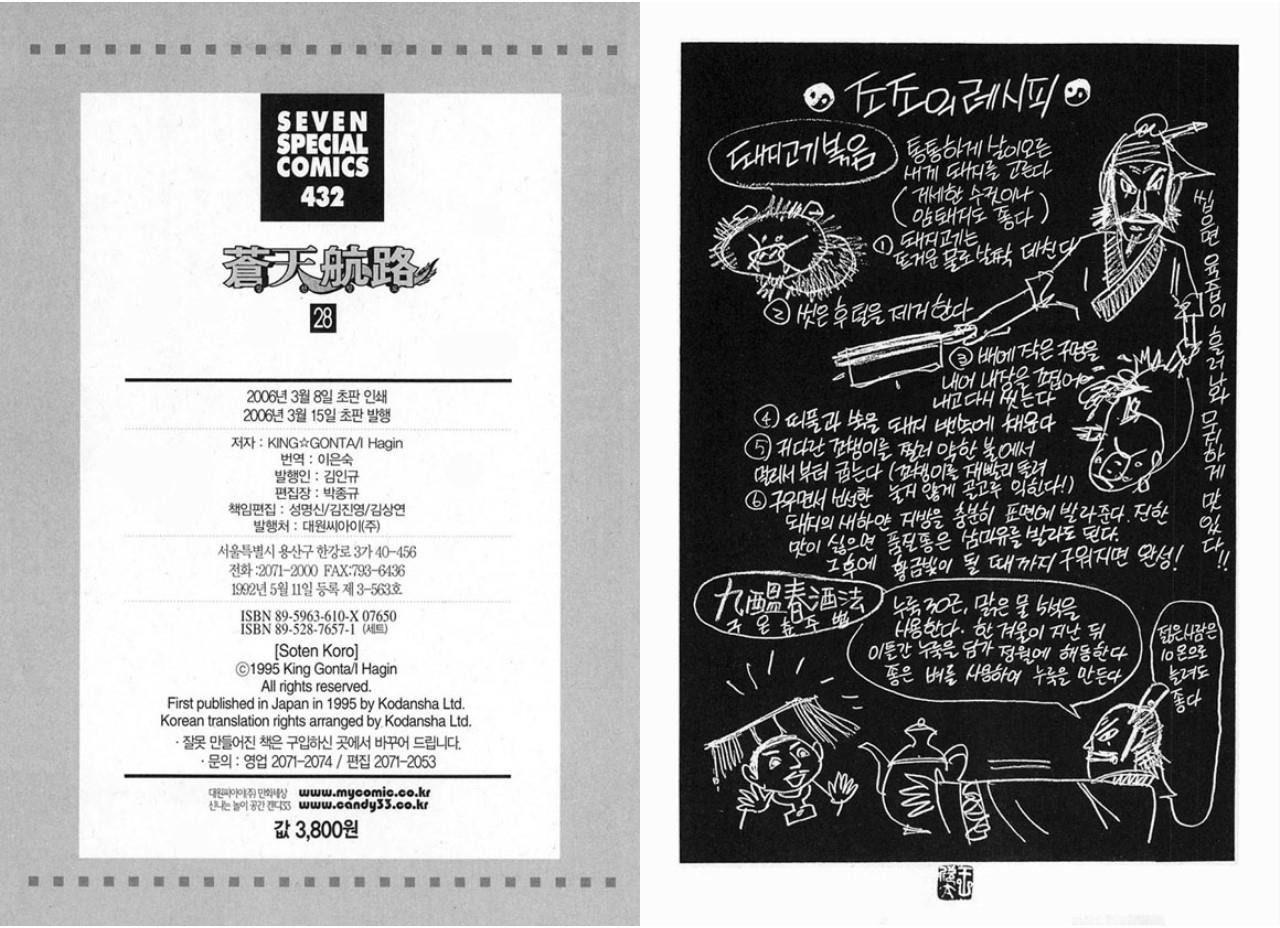 SEVEN
SPECIAL
COMICS
432
蒼天航路
28
2006년 3월 8일 초판 인쇄
2006년 3월 15일 초판 발행
저자 : KING☆GONTA/I Hagin
번역 : 이은숙
발행인 : 김인규
편집장 : 박종규
책임편집 : 성명신/김진영/김상연
발행처 : 대원씨아이(주)
서울특별시 용산구 한강로 3가 40-456
전화 :2071-2000 FAX:793-6436
1992년 5월 11일 등록 제 3-563호
ISBN 89-5963-610-X 07650
ISBN 89-528-7657-1 (세트)
[Soten Koro]
©1995 King Gonta/I Hagin
All rights reserved.
First published in Japan in 1995 by Kodansha Ltd.
Korean translation rights arranged by Kodansha Ltd.
· 잘못 만들어진 책은 구입하신 곳에서 바꾸어 드립니다.
· 문의 : 영업 2071-2074 / 편집 2071-2053
대원씨아이(주) 만화세상 www.mycomic.co.kr
신나는 놀이 공간 캔디33 www.candy33.co.kr
값 3,800원
죠죠의 레시피
돼지고기볶음
통통하게 살이오른
새게 돼지를 고른다
(거세한 수컷이나
암돼지도 좋다)
① 돼지고기는
뜨거운 물로 살짝 데친다
② 씻은 후 털을 제거한다
③ 배에 작은 구멍을
내어 내장을 끄집어
내고 다시 씻는다
④ 띠풀과 쑥을 돼지 뱃속에 채운다
⑤ 커다란 꼬챙이를 찔러 약한 불에서
멀리서부터 굽는다 (꼬챙이를 재빨리 돌려
늦지 않게 골고루 익힌다!)
⑥ 구우면서 신선한
돼지의 새하얀 지방을 충분히 표면에 발라준다. 진한
맛이 싫으면 품질좋은 삼마유를 발라도 된다.
그후에 황금빛이 될 때까지 구워지면 완성!
씹으면 육즙이 흘러나와 무지하게 맛있다!!
九醞春酒法
구온춘주법
누룩 30근, 맑은 물 5석을
사용한다. 한 겨울이 지난 뒤
이틀간 누룩을 담가 정월에 해동한다
좋은 벼를 사용하여 누룩을 만든다
젊은사람은
10온으로
늘려도
좋다